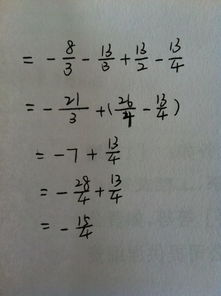 = - 8/3 - 13/3 + 13/2 - 13/4
= - 21/3 + (26/4 - 13/4)
= -7 + 13/4
= - 28/4 + 13/4
= - 15/4